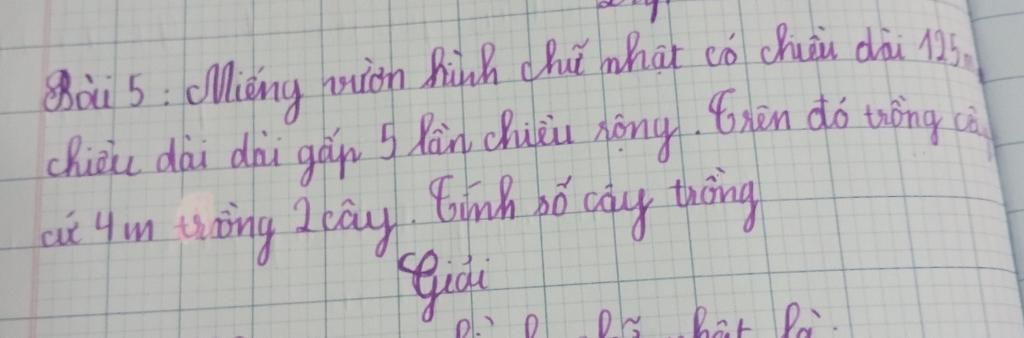 Bài 5: Miếng vườn hình chữ nhật có chiều dài 125m
chiều dài dài gấp 5 lần chiều rộng. Trên đó trồng cây
cứ 4m trồng 2 cây. Tính số cây trồng
Giải